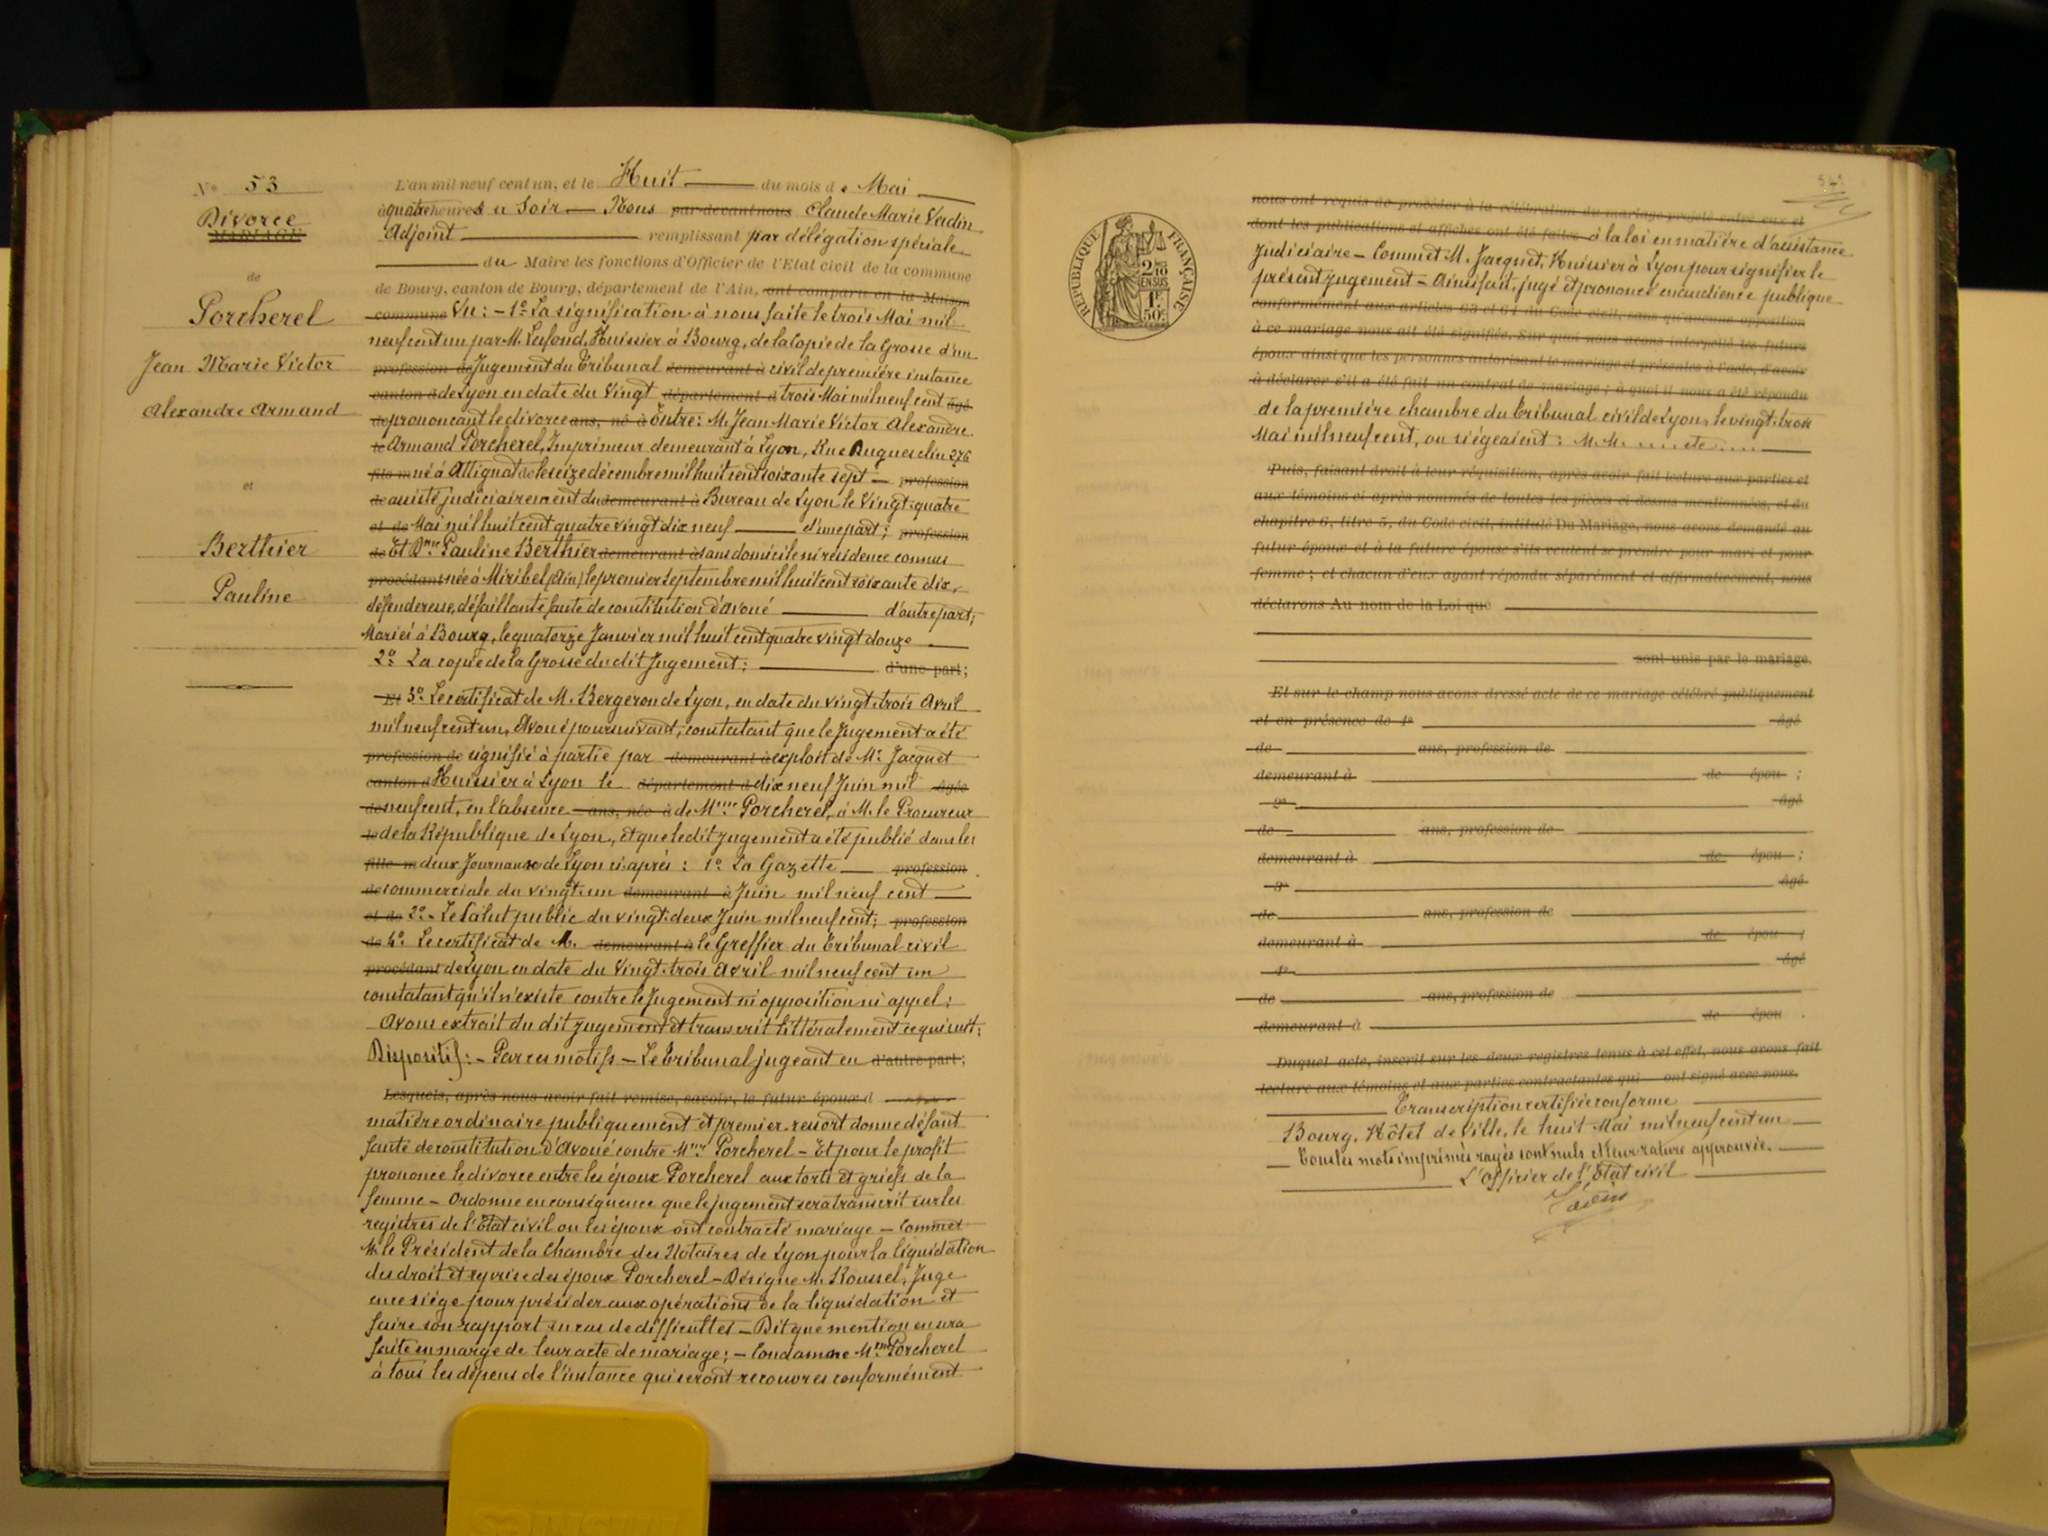 N° 53
Divorce
MARIAGE
de
Porcherel
Jean Marie Victor
Alexandre Armand
et
Berthier
Pauline
L'an mil neuf cent un, et le Huit du mois de Mai
à quatre heures du Soir Nous par-devant nous Claude Marie Verdin
Adjoint remplissant par délégation spéciale
du Maire les fonctions d'Officier de l'Etat civil de la commune
de Bourg, canton de Bourg, département de l'Ain, ont comparu en la Maison
commune Vu : - 1° La signification à nous faite le trois Mai mil
neuf cent un par M. Lafond, Huissier à Bourg, de la Copie de la Grosse d'un
profession de Jugement du Tribunal demeurant à civil de première instance
canton d de Lyon en date du Vingt département d trois Mai mil neuf cent âgé
de prononçant le divorce ans, né à Entre : M. Jean Marie Victor Alexandre
le Armand Porcherel, Imprimeur demeurant à Lyon, Rue Duguesclin 276
fils m né à Attignat de le seize décembre mil huit cent soixante sept profession
de assisté judiciairement du demeurant à Bureau de Lyon le Vingt-quatre
et de Mai mil huit cent quatre vingt dix neuf d'une part ; profession
de Et Dme Pauline Berthier demeurant à sans domicile ni résidence connus
procédant née à Miribel (Ain) le premier septembre mil huit cent soixante dix,
défenderesse, défaillante faute de constitution d'Avoué d'autre part ;
Mariés à Bourg, le quatorze Janvier mil huit cent quatre vingt douze
2° La copie de la Grosse du dit Jugement : d'une part ;
Et 3° Le certificat de M. Bergeron de Lyon, en date du vingt-trois Avril
mil neuf cent un, Avoué poursuivant, constatant que le Jugement a été
profession de signifié à partie par demeurant à exploit de Me Jacquet
canton d Huissier à Lyon le département d dix neuf Juin mil âgée
de neuf cent, en l'absence ans, née à de Mme Porcherel, à M. le Procureur
de la République de Lyon, et que le dit jugement a été publié dans les
fille m deux Journaux de Lyon ci-après : 1° La Gazette profession
de commerciale du vingt-un demeurant à Juin mil neuf cent
et de 2° - Le Salut public du vingt-deux Juin mil neuf cent ; profession
de 4° Le certificat de M. demeurant à le Greffier du Tribunal civil
procédant de Lyon en date du Vingt-trois Avril mil neuf cent un
constatant qu'il n'existe contre le Jugement ni opposition ni appel ;
Avons extrait du dit jugement et transcrit littéralement ce qui suit :
Dispositif : - Par ces motifs - Le Tribunal jugeant en d'autre part ;
Lesquels, après nous avoir fait remise, savoir, le futur époux d
matière ordinaire publiquement et premier ressort donne défaut
faute de constitution d'Avoué contre Mme Porcherel - Et pour le profit
prononce le divorce entre les époux Porcherel aux torts et griefs de la
femme - Ordonne en conséquence que le jugement sera transcrit sur les
registres de l'Etat civil où les époux ont contracté mariage - Commet
M. le Président de la Chambre des Notaires de Lyon pour la liquidation
des droit et reprise des époux Porcherel - Désigne M. Roussel, Juge
en ce siège pour présider aux opérations de la liquidation et
faire son rapport en cas de difficultés - Dit que mention en sera
faite en marge de leur acte de mariage ; - Condamne Mme Porcherel
à tous les dépens de l'instance qui seront recouvrés conformément
RÉPUBLIQUE FRANÇAISE
2/10 EN SUS
1F 50c
nous ont requis de procéder à la célébration du mariage projeté entre eux et
dont les publications et affiches ont été faites à la loi en matière d'assistance
judiciaire - Commet M. Jacquet, Huissier à Lyon pour signifier le
présent jugement - Ainsi fait, jugé et prononcé en audience publique
conformément aux articles 63 et 64 du Code civil, sans qu'aucune opposition
à ce mariage nous ait été signifiée. Sur quoi nous avons interpellé les futurs
époux ainsi que les personnes autorisant le mariage et présentes à l'acte, d'avoir
à déclarer s'il a été fait un contrat de mariage ; à quoi il nous a été répondu
de la première chambre du Tribunal civil de Lyon, le vingt-trois
Mai mil neuf cent, où siégeaient : M.M. .... etc ....
Puis, faisant droit à leur réquisition, après avoir fait lecture aux parties et
aux témoins ci-après nommés de toutes les pièces ci-dessus mentionnées, et du
chapitre 6, titre 5, du Code civil, intitulé Du Mariage, nous avons demandé au
futur époux et à la future épouse s'ils veulent se prendre pour mari et pour
femme ; et chacun d'eux ayant répondu séparément et affirmativement, nous
déclarons Au nom de la Loi que
sont unis par le mariage.
Et sur-le-champ nous avons dressé acte de ce mariage célébré publiquement
et en présence de 1° âgé
de ans, profession de
demeurant à de épou ;
2° âgé
de ans, profession de
demeurant à de épou ;
3° âgé
de ans, profession de
demeurant à de épou ;
4° âgé
de ans, profession de
demeurant à de épou .
Duquel acte, inscrit sur les deux registres tenus à cet effet, nous avons fait
lecture aux témoins et aux parties contractantes qui ont signé avec nous.
Transcription certifiée conforme
Bourg, Hôtel de Ville, le huit Mai mil neuf cent un
Tous les mots imprimés rayés sont nuls et leur rature approuvée.
L'Officier de l'Etat civil